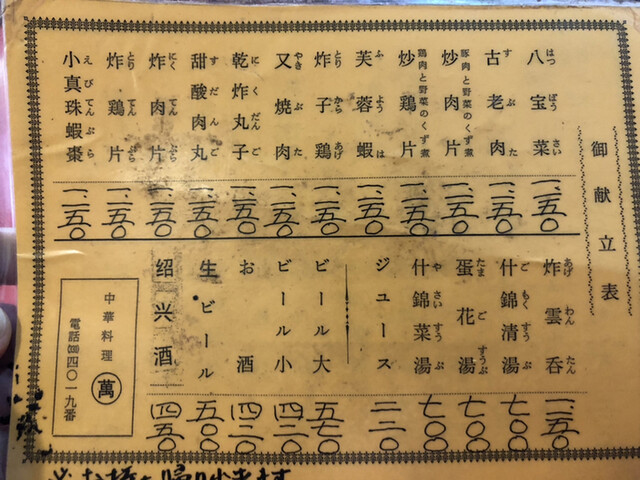 御献立表
八宝菜 はっぽうさい 一、二五〇
古老肉 すぶた 一、二五〇
炒肉片 豚肉と野菜のくず煮 一、二五〇
炒鶏片 鶏肉と野菜のくず煮 一、二五〇
芙蓉蝦 ふようは 一、二五〇
炸子鶏 とりからあげ 一、二五〇
叉焼肉 やきぶた 一、二五〇
乾炸丸子 にくだんご 一、二五〇
甜酸肉丸 すだんご 一、二五〇
炸肉片 にくてんぷら 一、二五〇
炸鶏片 とりてんぷら 一、二五〇
小真珠蝦棗 えびてんぷら 一、二五〇
炸雲呑 あげわんたん 一、一五〇
什錦清湯 ごもくすうぷ 七〇〇
蛋花湯 たまごすうぷ 七〇〇
什錦菜湯 やさいすうぷ 七〇〇
ジュース 二二〇
ビール大 五七〇
ビール小 四二〇
お酒 四二〇
生ビール 五〇〇
绍兴酒 四五〇
中華料理 萬
電話㈣四〇一九番